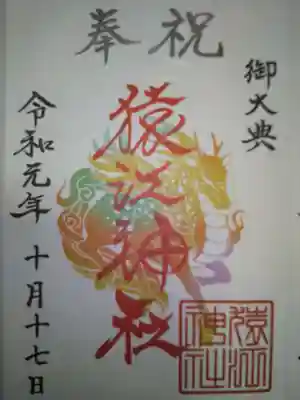 奉祝
御大典
猿江神社
令和元年 十月十七日
猿江
神社